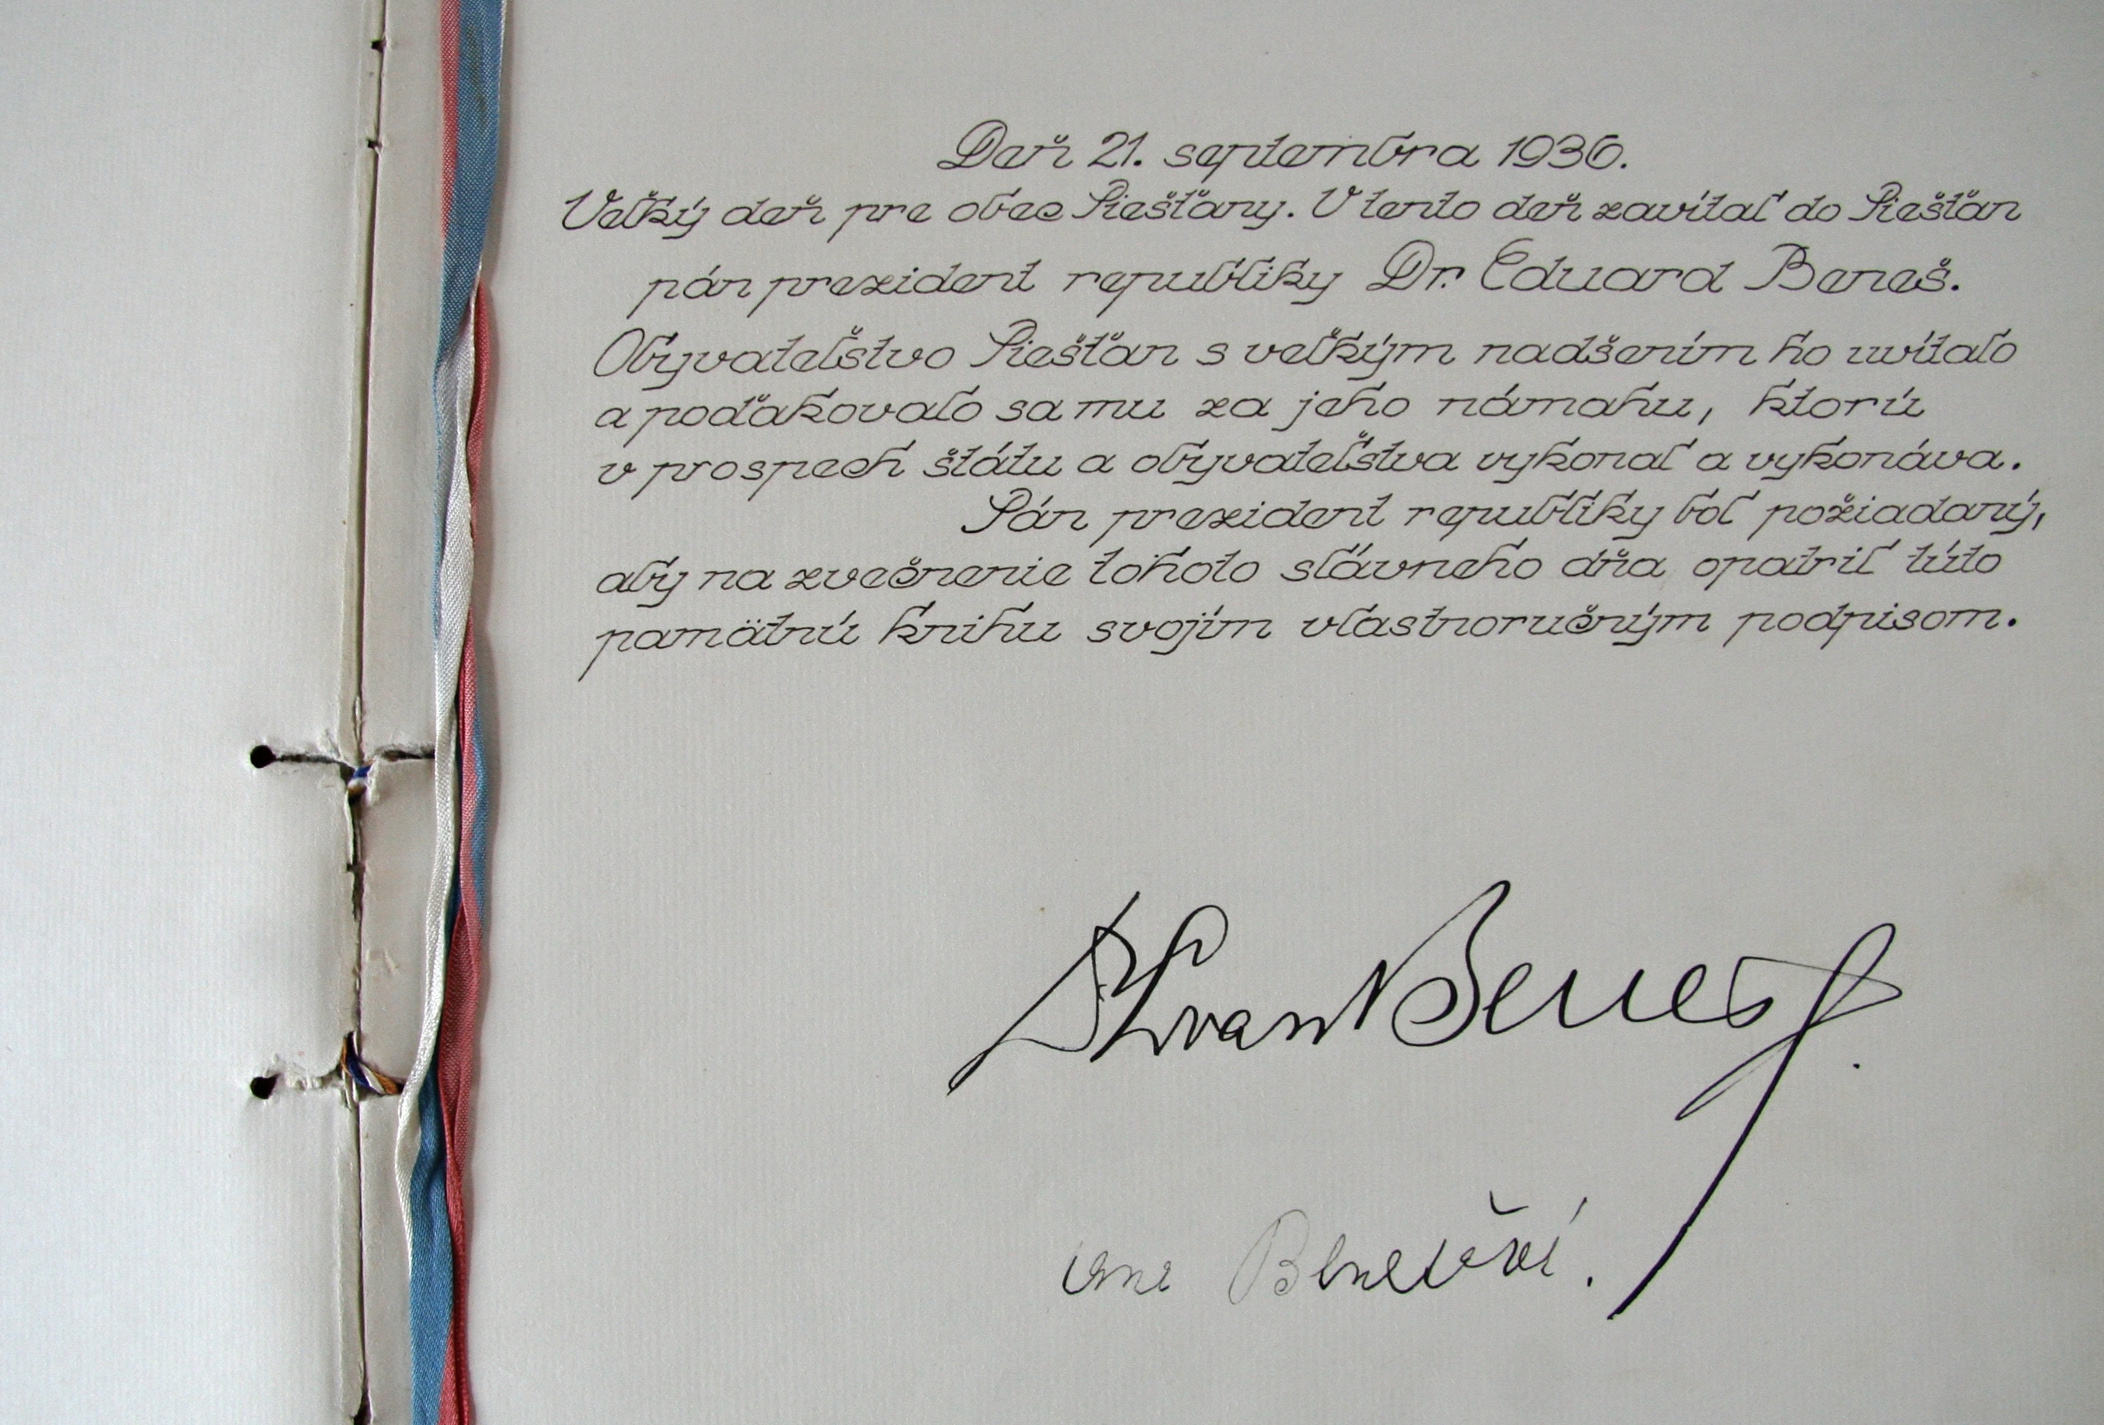 Deň 21. septembra 1936.
Veľký deň pre obec Piešťany. V tento deň zavítal do Piešťan
pán prezident republiky Dr. Eduard Beneš.
Obyvateľstvo Piešťan s veľkým nadšením ho uvítalo
a poďakovalo sa mu za jeho námahu, ktorú
v prospech štátu a obyvateľstva vykonal a vykonáva.
Pán prezident republiky bol požiadaný,
aby na zvečnenie tohoto slávneho dňa opatril túto
pamätnú knihu svojím vlastnoručným podpisom.
Dr Edvard Beneš.
Benešová.